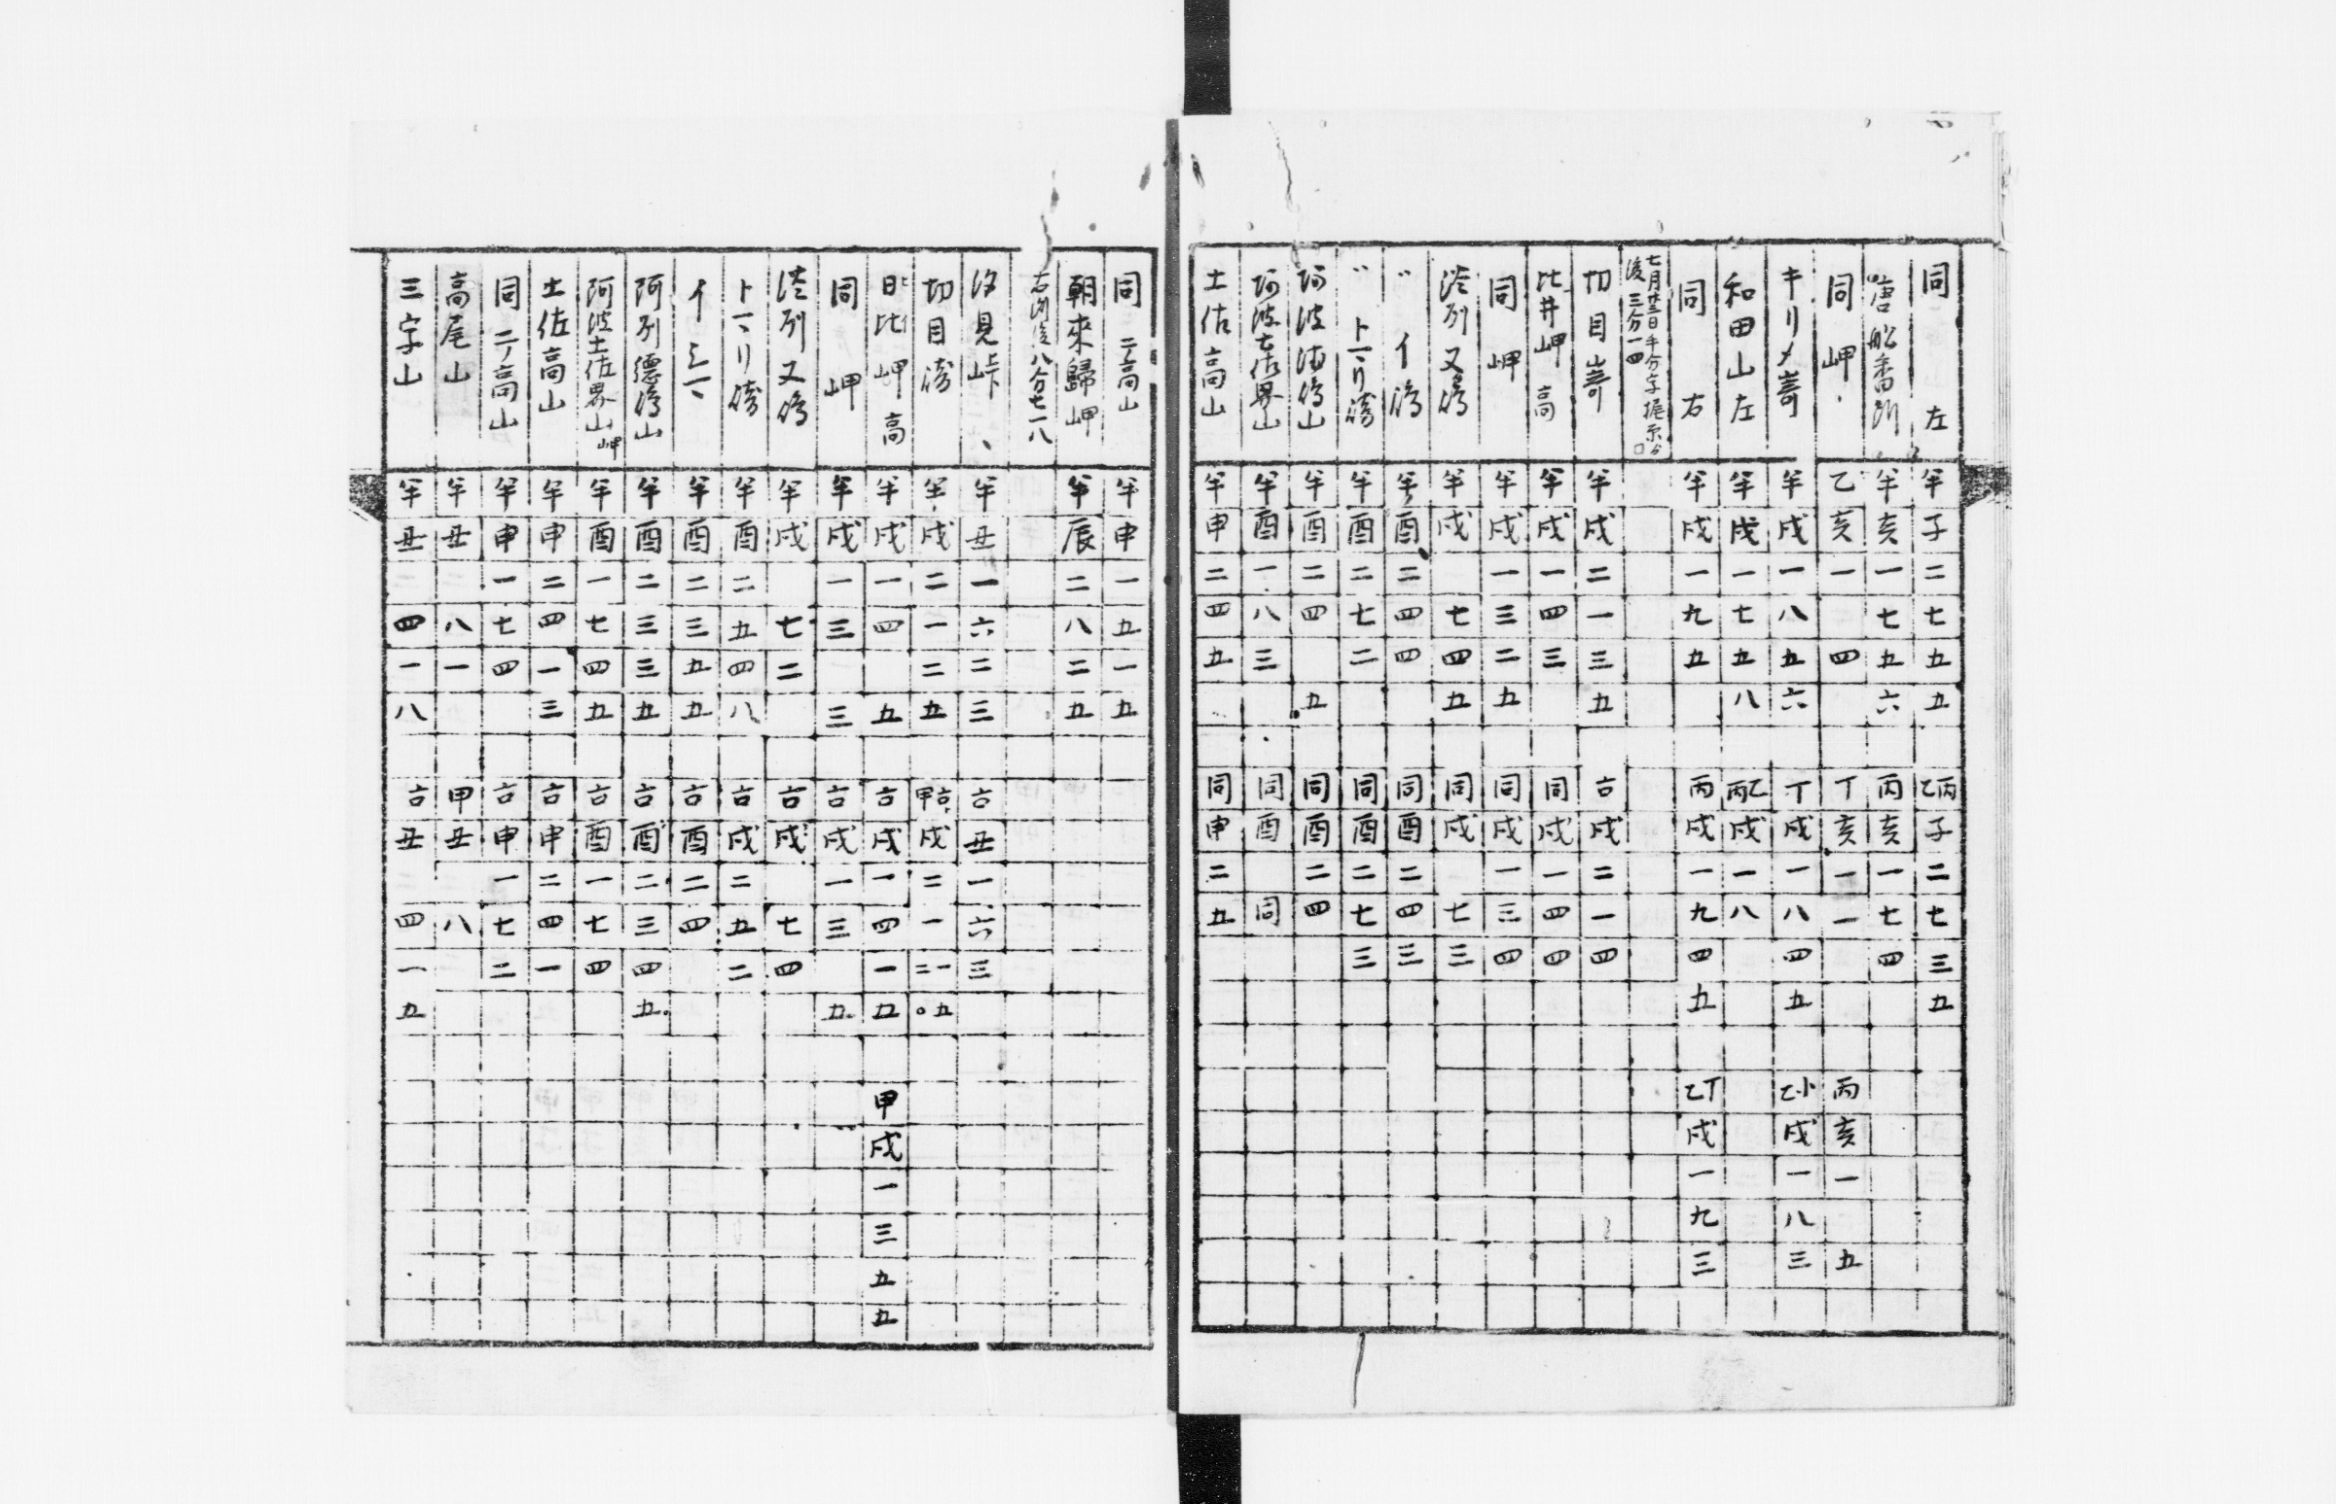 同 左 半子二七五五 乙丙子二七三五
唐船番所 半亥一七五六 丙亥一七四
同岬 乙亥一四 丁亥一一 丙亥一五
キリメ嵜 半戌一八五六 丁戌一八四五 乙小戌一八三
和田山左 半戌一七五八 丙乙戌一八
同 右 半戌一九五 丙戌一九四五 乙丁戌一九三
七月廿三日半分字
後三分一四
切目嵜 半戌二一三五 古戌二一四
比井岬高 半戌一四三 同戌一四四
同岬 半戌一三二五 同戌一三四四
淡刕又嶋 半戌七四五 同戌七三
〃 イ嶋 半酉二四四 同酉二四三
〃 トマリ嶋 半酉二七二 同酉二七三
阿波 山 半酉二四五 同酉二四
阿波土佐界山 半酉一八三 同酉同
土佐高山 半申二四五 同申二五
同二ノ高山 半申一五一五
朝來歸岬 半辰二八二五
右測後八分七一八
汐見峠 半丑一六二三 古丑一六三
切目嵜 半戌二一二五 甲古戌二一二一〇五
日比岬高 半戌一四五 古戌一四一五 甲戌一三五五
同岬 半戌一三三 古戌一三五
淡刕又嶋 半戌七二 古戌七四
トマリ嶋 半酉二五四八 古戌二五二
イシマ 半酉二三五五 古酉二四
阿刕德嶋山 半酉二三三五 古酉二三四五
阿波土佐界山岬 半酉一七四五 古酉一七四
土佐高山 半申二四一三 古申二四一
同二ノ高山 半申一七四 古申一七二
高尾山 半丑八一 甲丑八
三字山 半丑四一八 古丑四一五